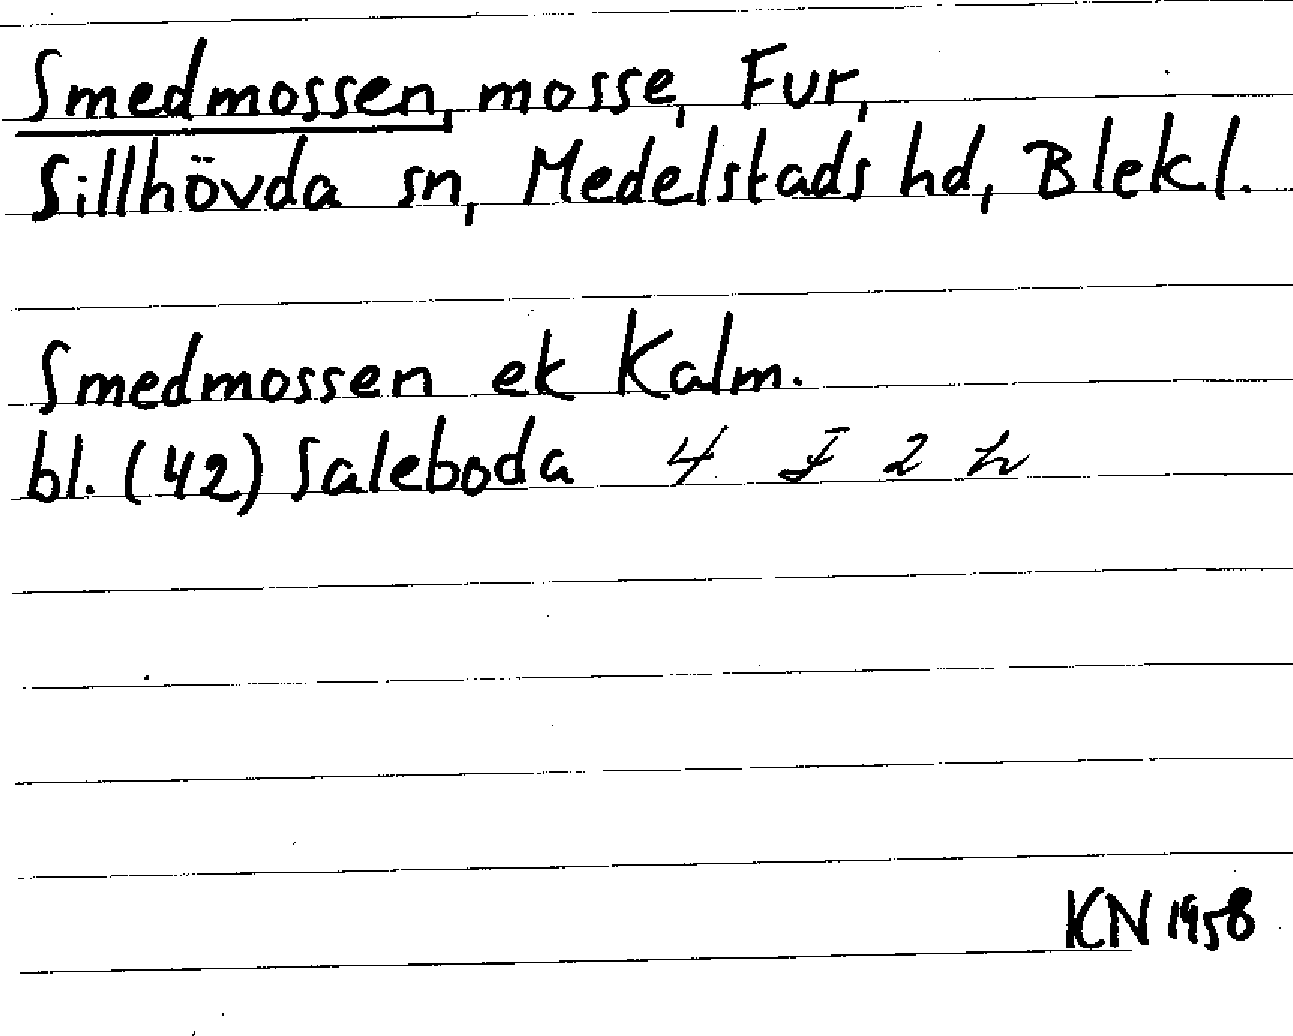 Smedmossen, mosse, Fur,
Sillhövda sn, Medelstads hd, Blekl.
Smedmossen ek Kalm.
bl. (42) Saleboda 4 F 2 h
KN 1958